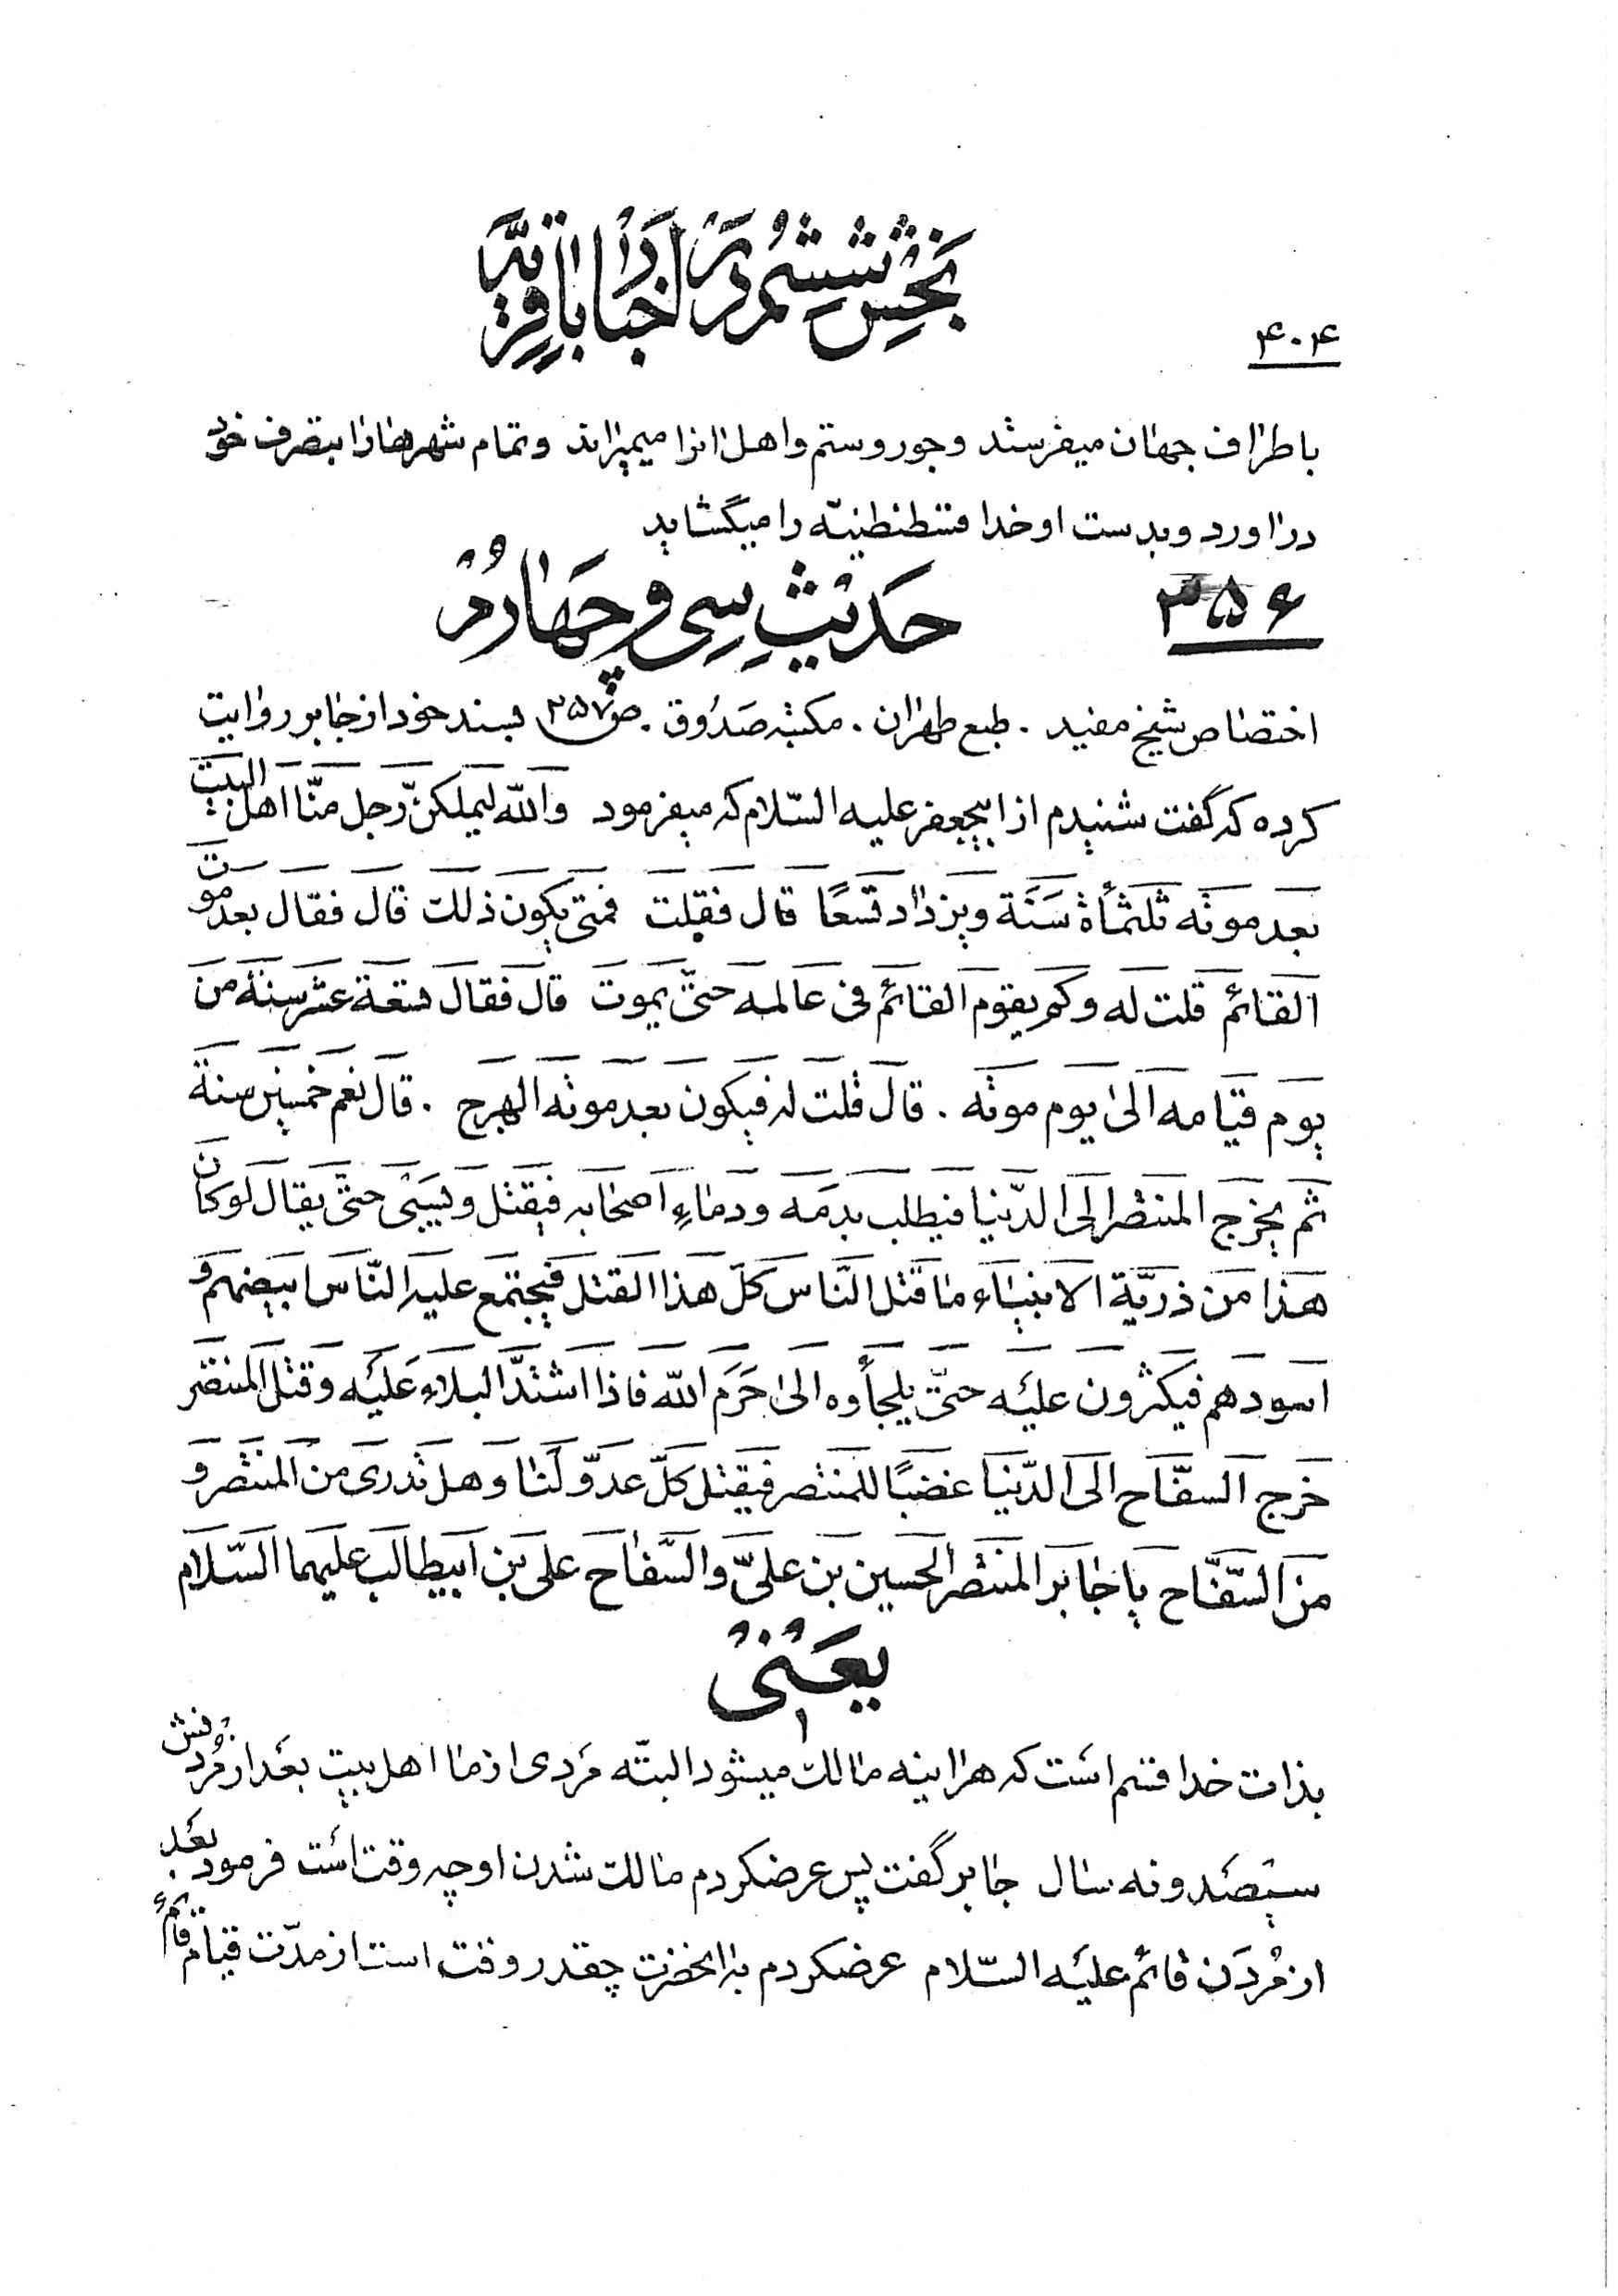 بخش ششم در اخبار باقریّه
۴۰۴
باطراف جهان میفرستد و جور و ستم و اهل انرا میمیراند و تمام شهرها را بتصرف خود
در اورد و بدست او خدا قسطنطنیّه را میگشاید
۳۵۶
حدیث سی و چهارم
اختصاص شیخ مفید . طبع طهران . مکتبه صدوق . ص۲۵۷ بسند خود از جابر روایت
کرده که گفت شنیدم از ابیجعفر علیه السّلام که میفرمود والله لیملکنّ رجل منّا اهل البیت
بعد موته ثلثمأة سَنَة ویزداد تسعًا قال فقلت فمتی یکون ذلک قال فقال بعد موت
القائم قلت له وکم یقوم القائم فی عالمه حتّی یموت قال فقال تسعة عشر سنة من
یوم قیامه الی یوم موته . قال قلت له فیکون بعد موته الهرج . قال نعم خمسین سنة
ثم یخرج المنتصر الی الدّنیا فیطلب بدمه ودماءِ اصحابه فیقتل ویسبی حتّی یقال لو کان
هذا من ذریّة الانبیاء ما قتل النّاس کلّ هذا القتل فیجتمع علیه النّاس ابیضهم و
اسودهم فیکثرون علیه حتّی یلجأوه الی حرم الله فاذا اشتدّ البلاء علیه وقتل المنتصر
خرج السفّاح الی الدّنیا غضبًا للمنتصر فیقتل کلّ عدوّ لنا وهل تدری من المنتصر و
من السّفّاح یا جابر المنتصر الحسین بن علیّ والسّفاح علی بن ابیطالب علیهما السّلام
یعنی
بذات خدا قسم است که هراینه مالک میشود البتّه مردی از ما اهل بیت بعد از مردنش
سیصد و نه سال جابر گفت پس عرضکردم مالک شدن او چه وقت است فرمود بعد
از مردن قائم علیه السّلام عرضکردم به انحضرت چقدر وقت است از مدّت قیام قائم